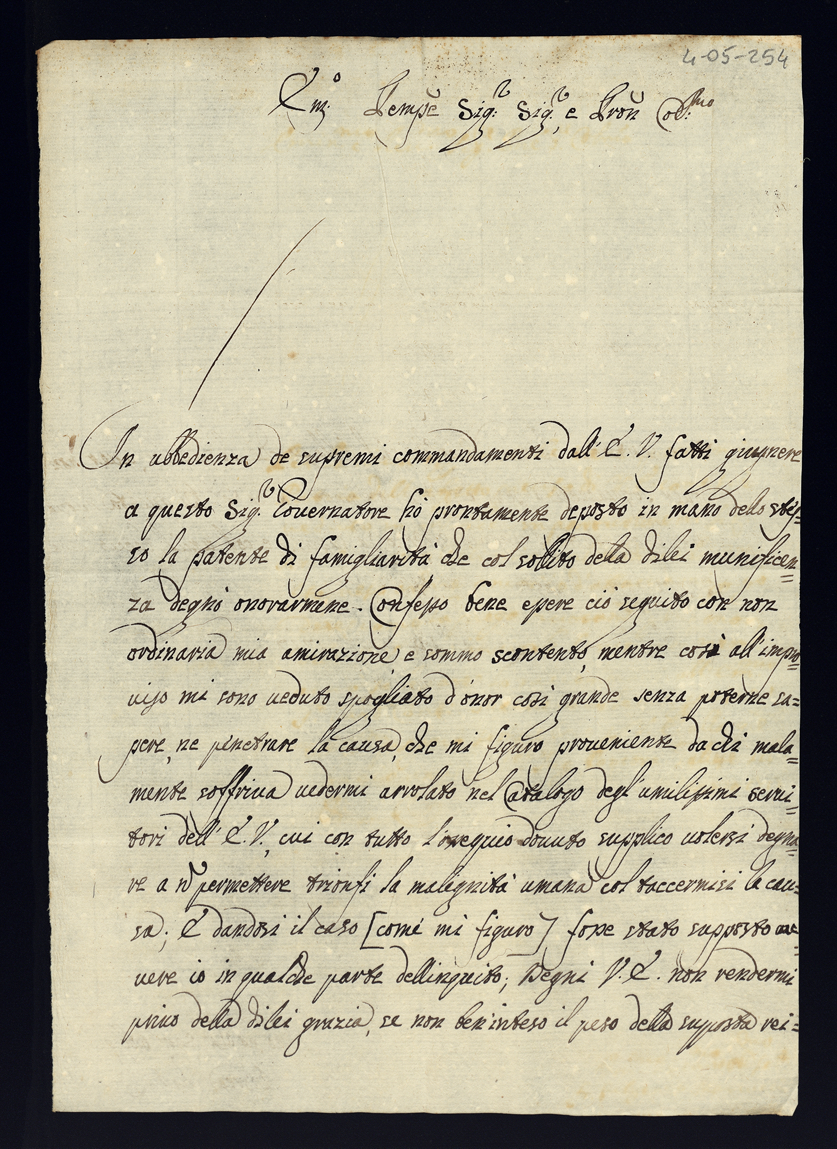 4-05-254
Em.o Pempe Sig.r Sig.r, e Pron Co:mo
In ubbedienza de supremi commandamenti dall' E. V. fatti giugnere
a questo Sig.r Governatore hò prontamente deposto in mano dello stes=
so la patente di famigliarità che col sollito della dilei munificen=
za degnò onorarmene. Confesso bene essere ciò seguito con non
ordinaria mia amirazione, e sommo scontento, mentre così all'impro=
viso mi sono veduto spogliato d'onor così grande senza poterne sa=
pere, ne penetrare la causa, che mi figuro proveniente da chi mala=
mente soffriva vedermi arrolato nel Catalogo degl'umilissimi servi=
tori dell' E. V., cui con tutto l'ossequio dovuto supplico volersi degna=
re a n permettere trionfi la malignità umana col taccermisi la cau=
sa; E dandosi il caso [come mi figuro] fosse stato supposto
vere io in qualche parte dellinquito; Degni V. E. non rendermi
privo della dilei grazia, se non ben'inteso il peso della supposta rei=